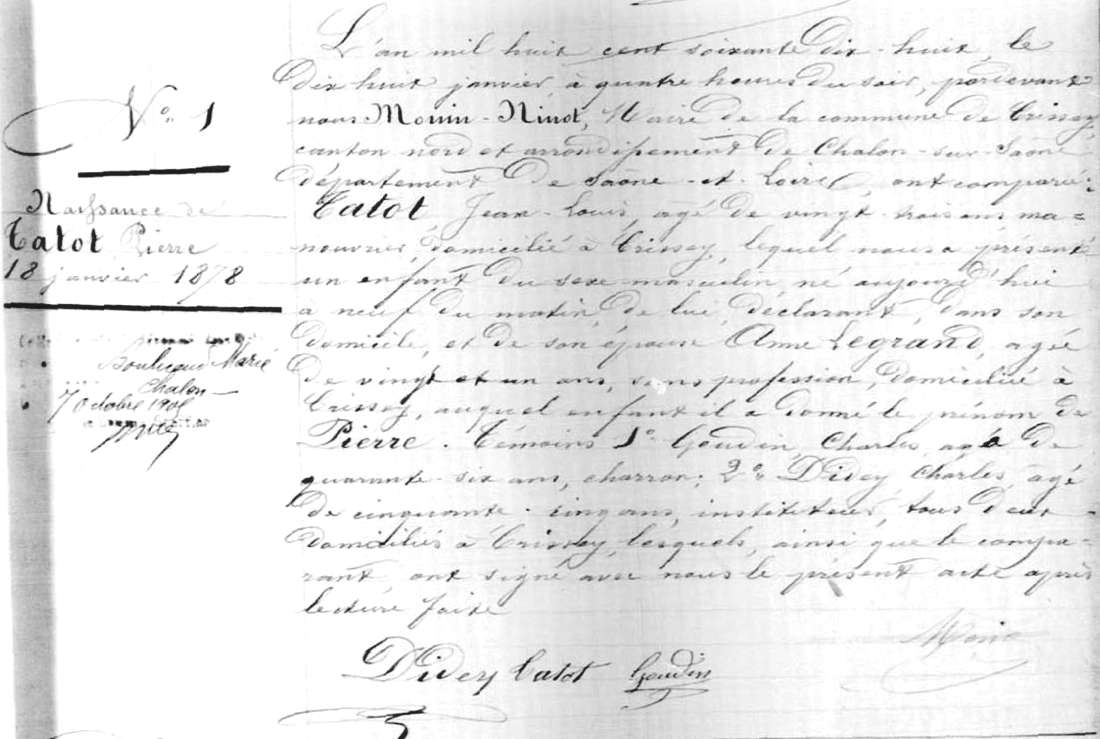 N° 1
Naissance de
Tatot Pierre
18 janvier 1878
Marie
Chalon
7 octobre 1905
L'an mil huit cent soixante dix-huit, le
dix huit janvier, à quatre heures du soir, pardevant
nous Monin-Ninot, Maire de la commune de Crissey,
canton nord et arrondissement de Chalon-sur-Saône
département de Saône-et-Loire, ont comparu:
Tatot Jean-Louis, agé de vingt-trois ans ma=
nouvrier, domicilié à Crissey, lequel nous a présenté
un enfant du sexe masculin, né aujourd'hui
à neuf du matin, de lui, déclarant, dans son
domicile, et de son épouse Anne Legrand, agée
de vingt et un ans, sans profession, domiciliée à
Crissey, auquel enfant il a donné le prénom de
Pierre. Témoins 1° Goudin, Charles, agé de
quarante-six ans, charron; 2° Didey Charles, agé
de cinquante-cinq ans, instituteur, tous deux
domiciliés à Crissey, lesquels, ainsi que le compa-
rant, ont signé avec nous le présent acte après
lecture faite
Didey Tatot Goudin
Monin